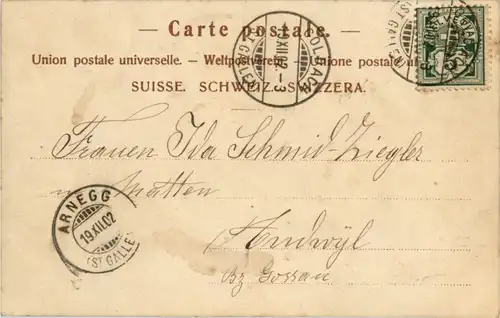 — Carte postale. —
Union postale universelle. — Weltpostverein. — Unione postale
SUISSE. SCHWEIZ. SVIZZERA.
GOLDACH
XII.02.
(ST GALLEN)
Frauen Ida Schmid-Ziegler
Matten
Andwyl
Bz. Gossau
ARNEGG
19.XII.02
(ST GALLEN)